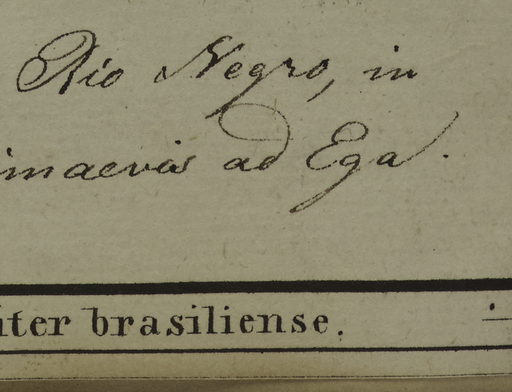 Rio Negro, in
imaevis ad Ega.
iter brasiliense.